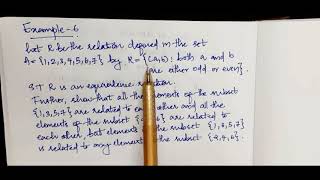 Example-6
Let R be the relation defined in the set
A = {1,2,3,4,5,6,7} by R = {(a,b): both a and b
are either odd or even}.
S.T R is an equivalence relation.
Further, show that all the elements of the subset
{1,3,5,7} are related to each other and all the
elements of the subset 6} are related to
each other, but elements of the subset {1,3,5,7}
is related to any element of the subset {2,4,6}.